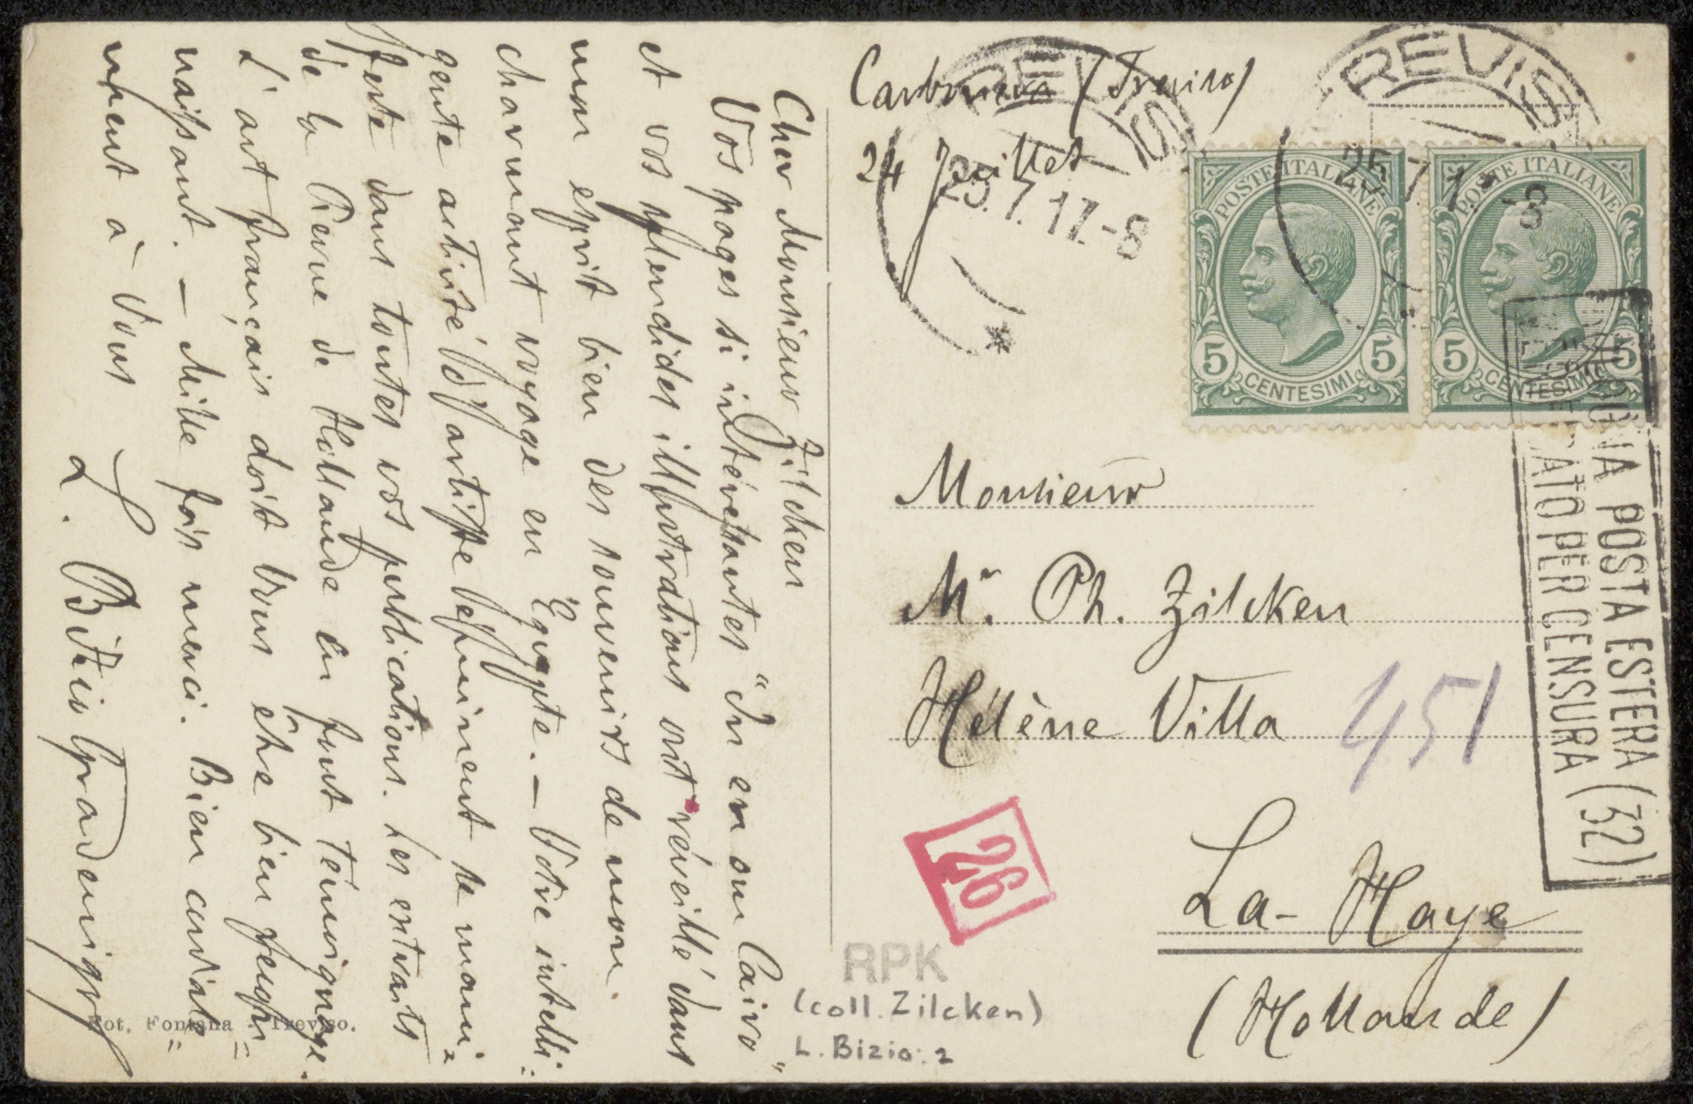 Carbonera (Treviso)
24 Juillet
TREVISO
25.7.17.-8
TREVISO
25.7.17-8
POSTE ITALIANE
5 CENTESIMI 5
POSTE ITALIANE
5 CENTESIMI 5
Cher Monsieur Zilcken
Vos pages si intéressantes "In en om Cairo"
et vos splendides illustrations ont réveillé dans
mon esprit bien des souvenirs de mon
charmant voyage en Égypte. – Votre intelli=
gente activité d'artiste se
feste dans toutes vos publications. Les extraits
de la Revue de Hollande en font témoignage.
L'art français doit Vous être bien
naissant. – Mille fois merci. Bien cordiale=
ment à Vous
L. Bizio Gradenigo
Fot. Fontana - Treviso.
Monsieur
Mr. Ph. Zilcken
Hélène Villa
451
La-Haye
(Hollande)
26
POSTA ESTERA (32)
PER CENSURA
RPK
(coll. Zilcken)
L. Bizio: 2